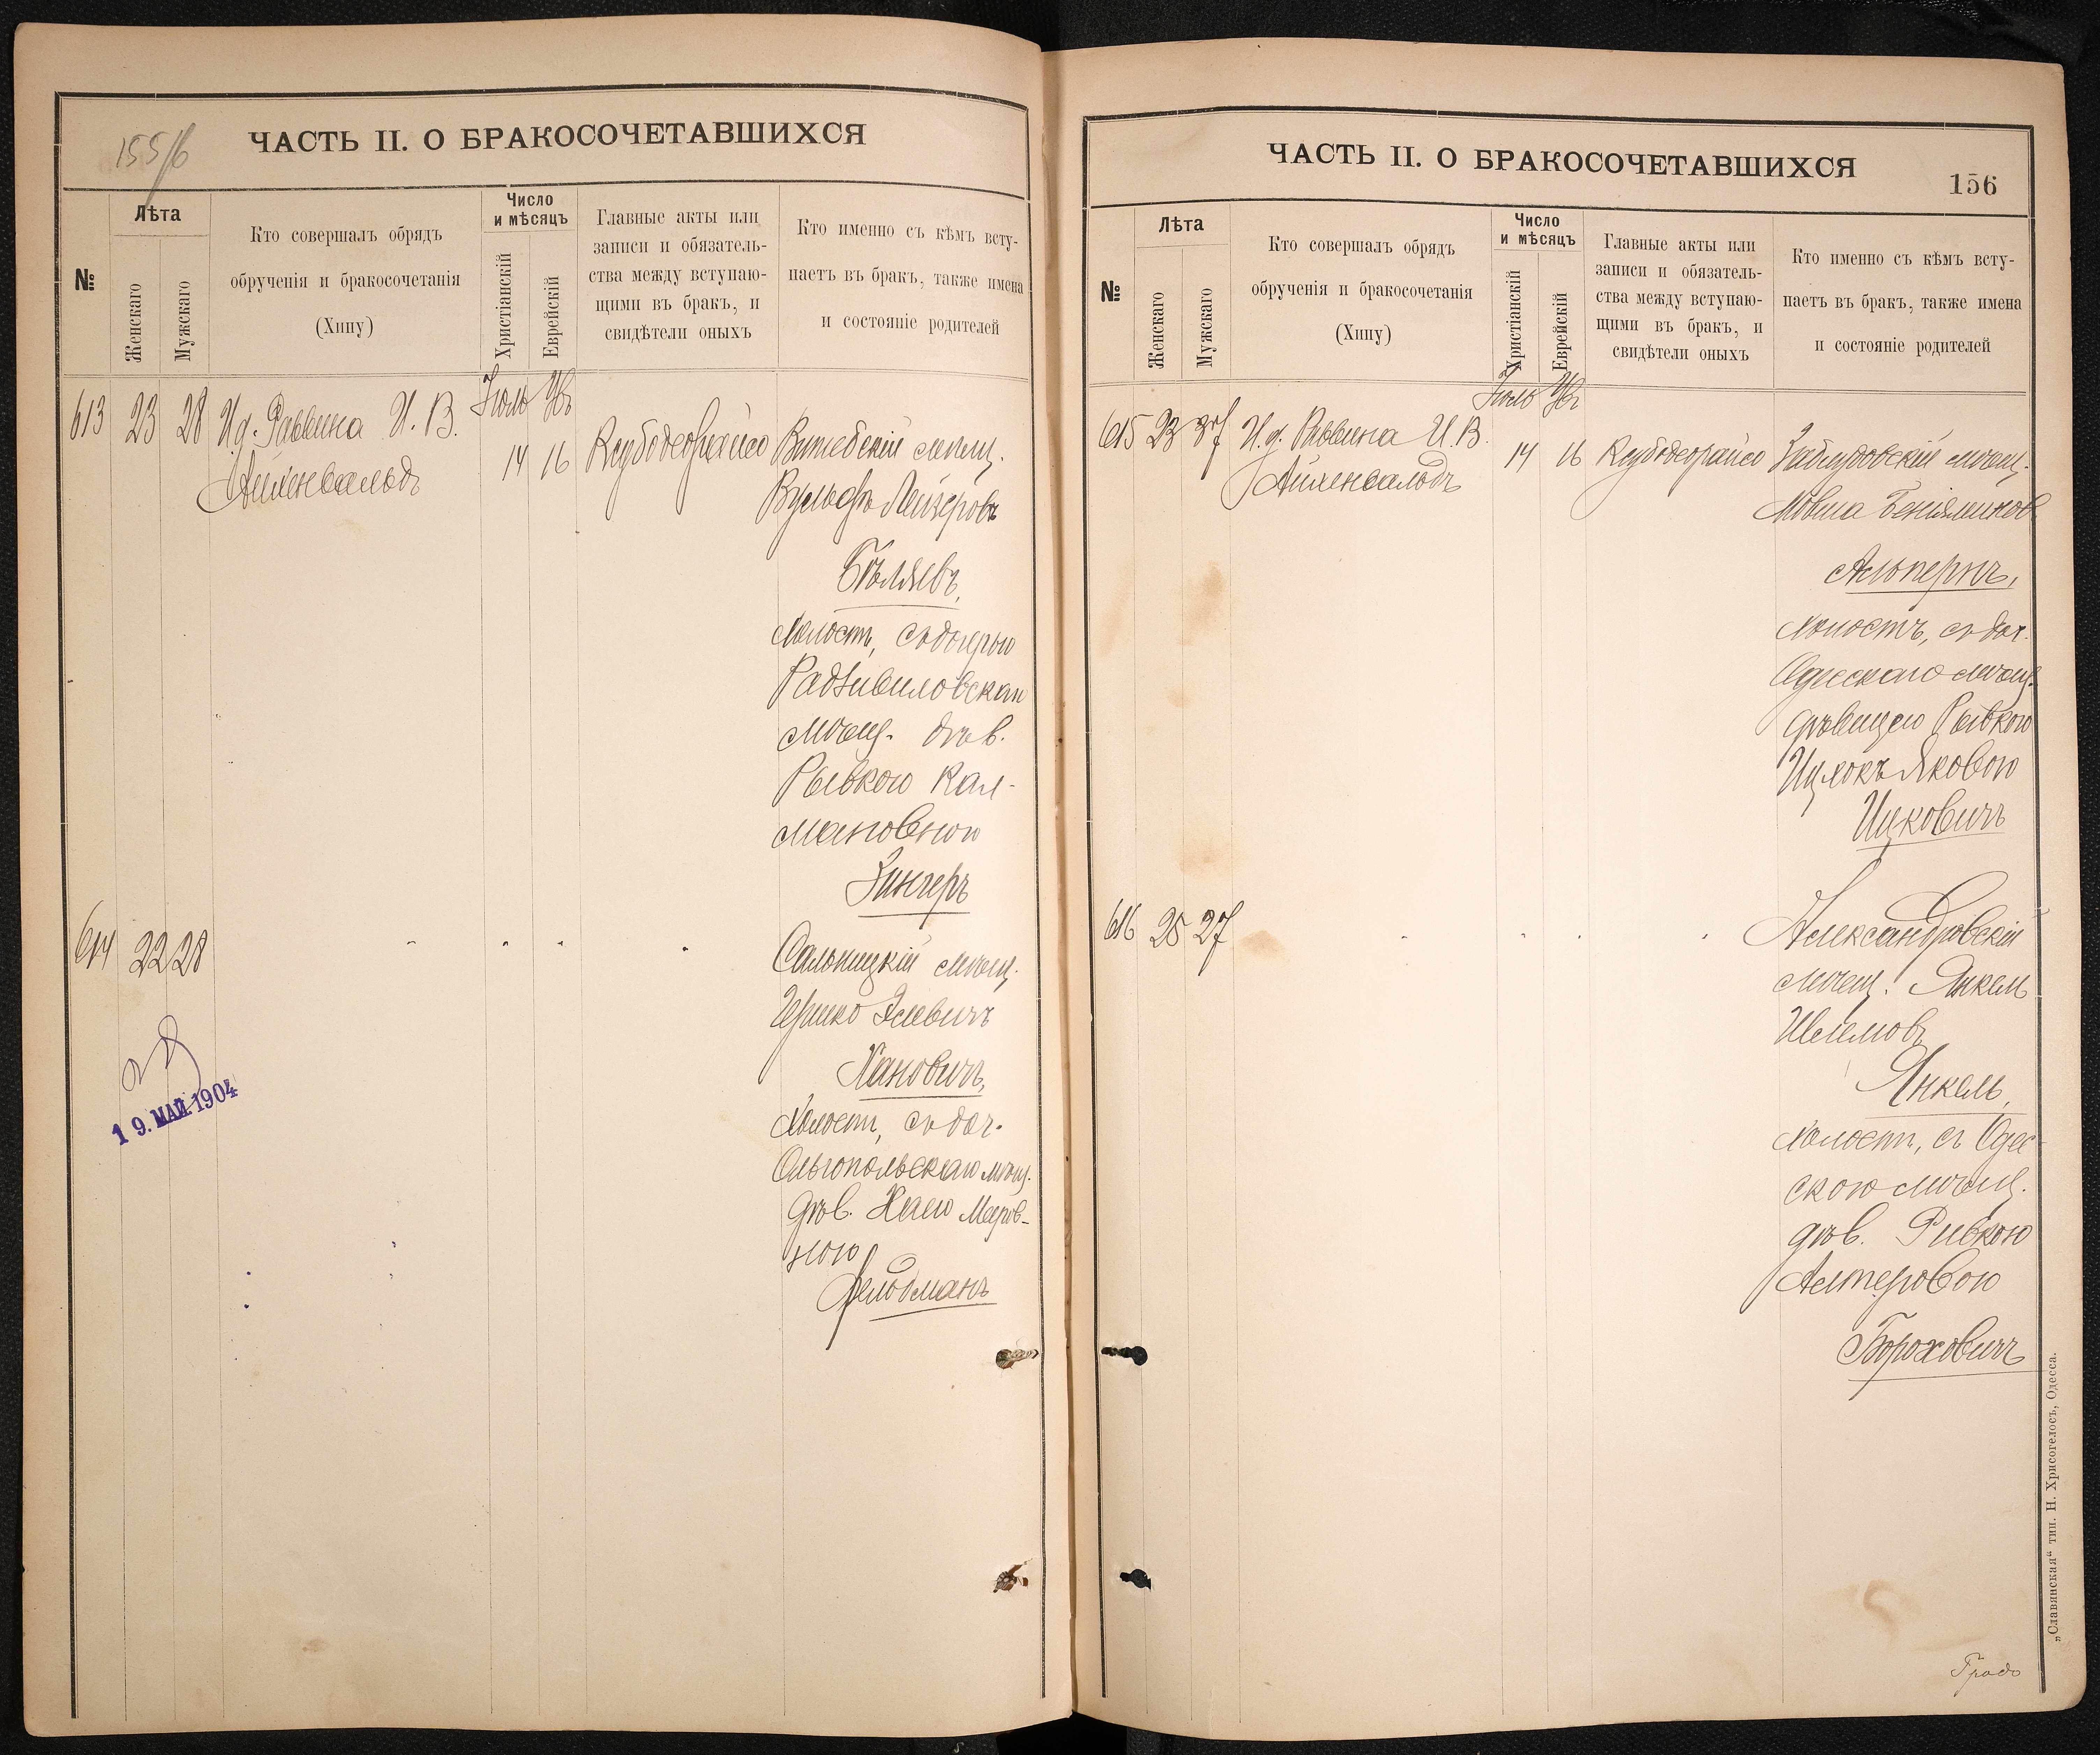 155/6
ЧАСТЬ II. О БРАКОСОЧЕТАВШИХСЯ
№
Лѣта
Женскаго
Мужскаго
Кто совершалъ обрядъ
обрученія и бракосочетанія
(Хипу)
Число
и мѣсяцъ
Христіанскій
Еврейскій
Главные акты или
записи и обязатель-
ства между вступаю-
щими въ бракъ, и
свидѣтели оныхъ
Кто именно съ кѣмъ всту-
паетъ въ бракъ, также имена
и состояніе родителей
613 23 28 И.д. Раввина И. В.
Айхенвальдъ
14 16
Витебскій мѣщ.
Вульфъ Лейзеровъ
Бѣляевъ,
холостъ, съ дочерью
Радзивиловскаго
мѣщ. дѣв.
Рывкою Кал-
мановною
Зингеръ
614 22 28
Сальницкій мѣщ.
Гершко Элевичъ
Хановичъ,
холостъ, съ доч.
Ольгопольскаго мѣщ.
дѣв. Хаею Мееров-
ною
Фельдманъ
19. МАЙ 1904
ЧАСТЬ II. О БРАКОСОЧЕТАВШИХСЯ
156
№
Лѣта
Женскаго
Мужскаго
Кто совершалъ обрядъ
обрученія и бракосочетанія
(Хипу)
Число
и мѣсяцъ
Христіанскій
Еврейскій
Главные акты или
записи и обязатель-
ства между вступаю-
щими въ бракъ, и
свидѣтели оныхъ
Кто именно съ кѣмъ всту-
паетъ въ бракъ, также имена
и состояніе родителей
615 23 37 И.д. Раввина И. В.
Айхенвальдъ
14 16
Заблудовскій мѣщ.
Мовша Беніяминов
Альпернъ,
холостъ, съ доч.
Одесскаго мѣщ.
дѣвицею Рывкою
Ицхокъ Яковою
Ицковичъ
616 25 27
Александровскій
мѣщ. Янкель
Шлемовъ
Янкель,
холостъ, съ Одес-
скою мѣщ.
дѣв. Ривкою
Алтеровою
Бороховичъ
„Славянская“ тип. Н. Хрисогелосъ, Одесса.